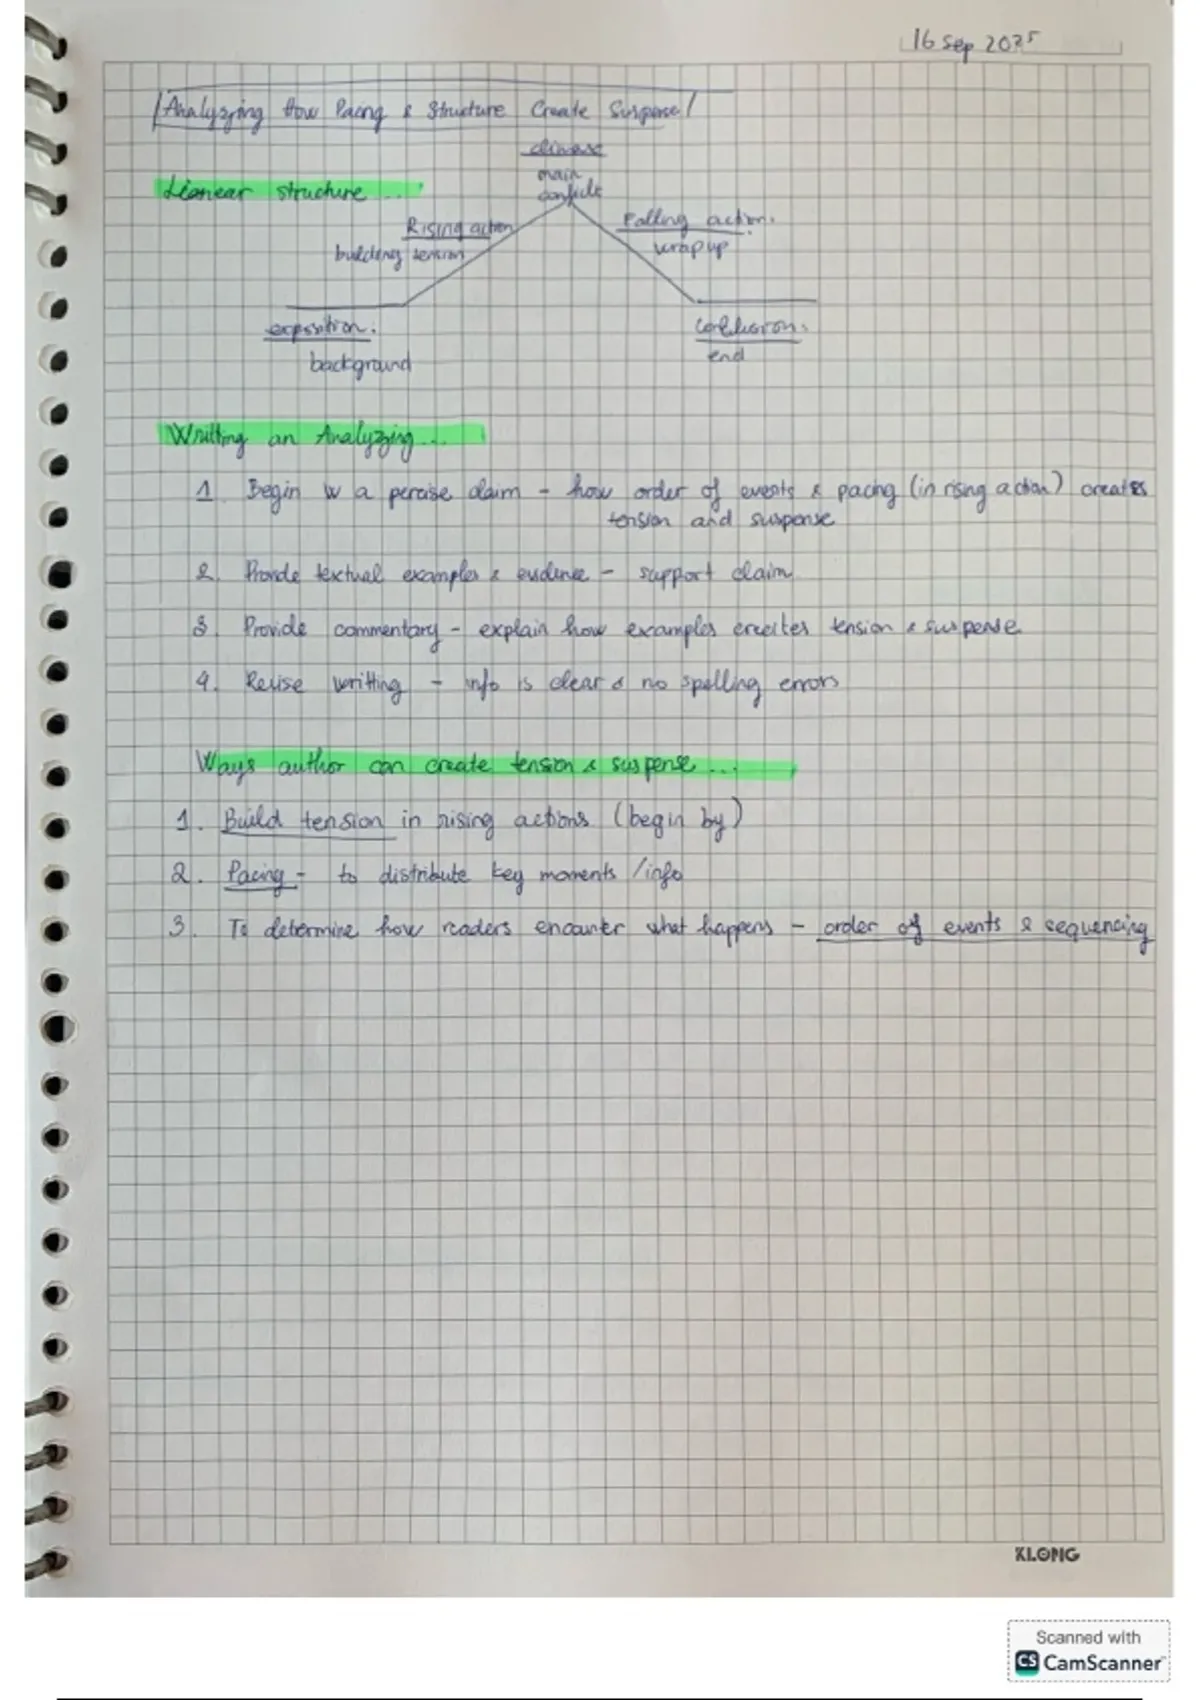 16 Sep 2025
/Analyzing How Pacing & Structure Create Suspense/
climax
main
conflict
Linear structure...
Rising action
building tension
Falling action.
wrap up
exposition.
background
Conclusion.
end
Writting an Analyzing...
1. Begin w a percise claim - how order of events & pacing (in rising action) creates
tension and suspense
2. Provide textual examples & evidence - support claim
3. Provide commentary - explain how examples creates tension & suspense
4. Revise writting - info is clear & no spelling errors
Ways author can create tension & suspense...
1. Build tension in rising actions (begin by)
2. Pacing - to distribute key moments / info
3. To determine how readers encounter what happens - order of events & sequencing
KLONG
Scanned with
CS CamScanner